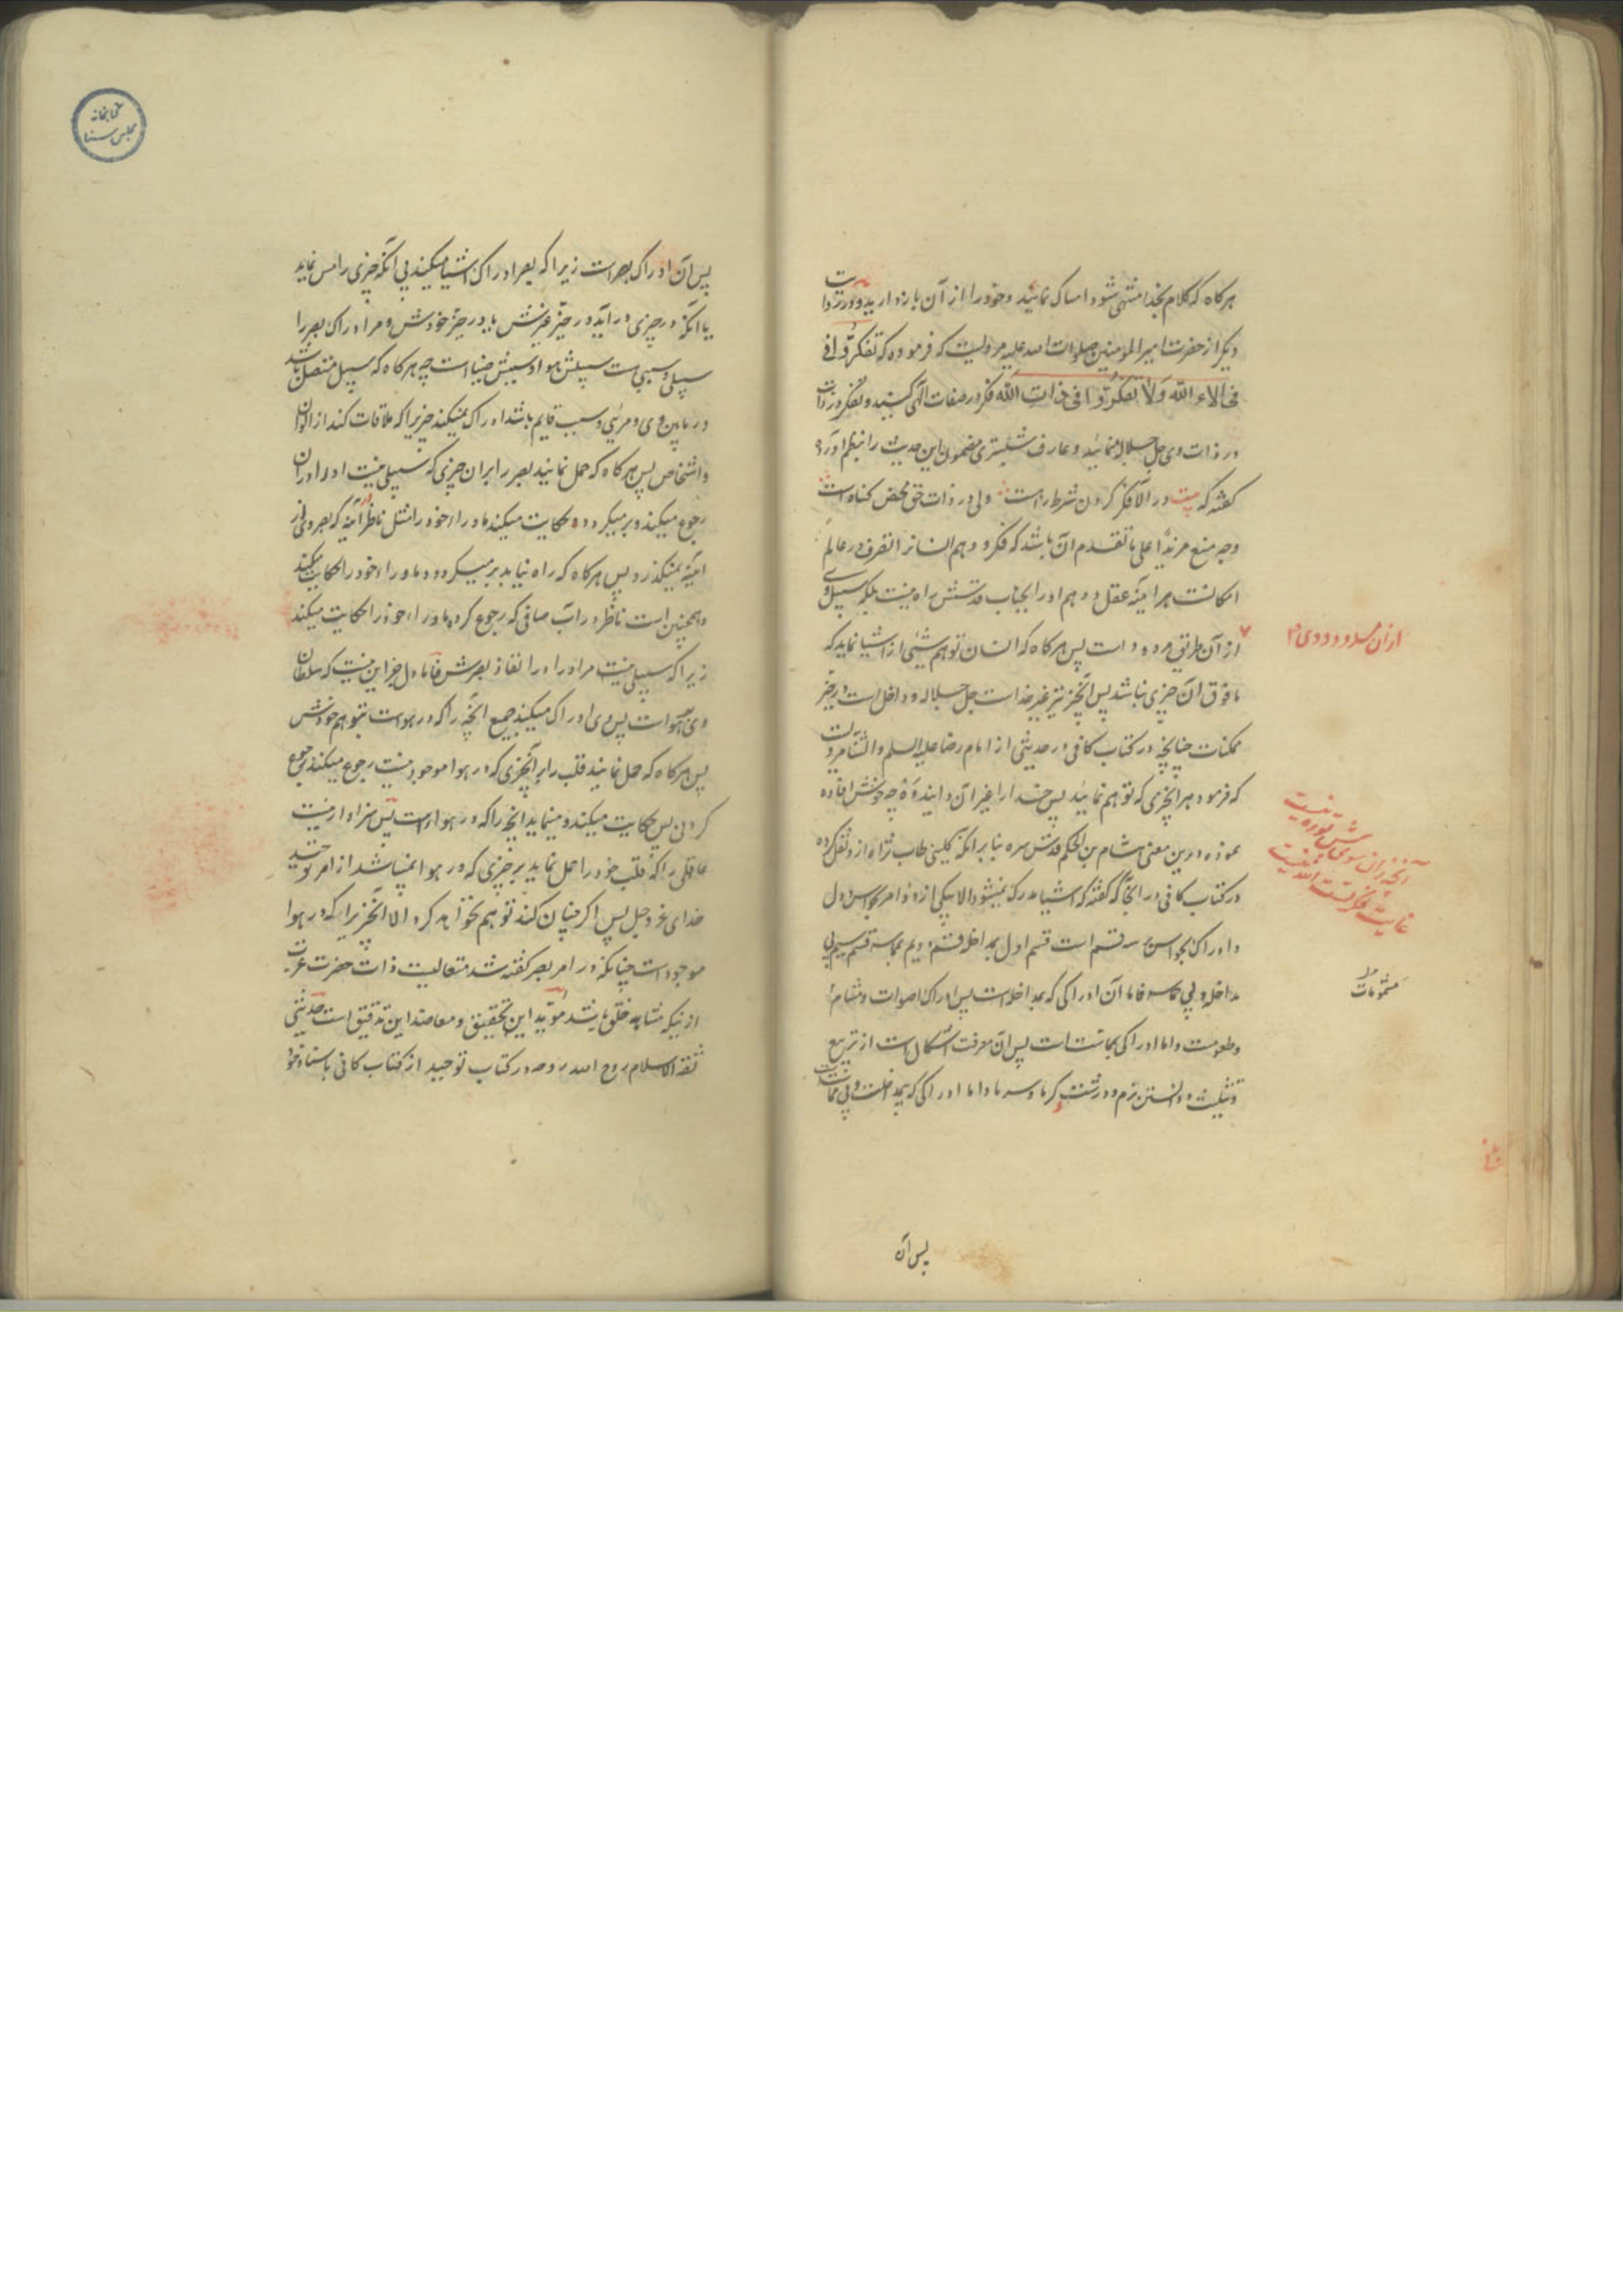 هرگاه که کلام بخدا منتهی شود امساک نمائید و خود را از آن باز دارید و در روایت
دیگر از حضرت امیر المؤمنین صلوات الله علیه مرویست که فرموده که تفکروا فی
فی آلاء الله ولا تفکروا فی ذات الله فکر در صفات الهی کنید و تفکر در ذات
در ذات وی جل جلاله منمائید و عارف شبستری مضمون این حدیث را بنظم آورده
گفته که بیت در آلا فکر کردن شرط راهست ولی در ذات حق محض گناه است
وجه منع مر بنده را علی ما تقدم آن باشد که فکر و وهم انسان را تصرف در عالم
امکانست هر آینه عقل و وهم او را بجناب قدسش راه نیست بلکه سبیل وی
از آن طریق مردود است پس هرگاه که انسان توهم شیئی از اشیا نماید که
ما فوق آن چیزی نباشد پس آنچیز نیز غیر خداست جل جلاله و داخل است در حیّز
ممکنات چنانچه در کتاب کافی در حدیثی از امام رضا علیه السلم والثنا مرویست
که فرمود هر آنچیزی که توهم نمائید پس خدا را غیر آن دانید و چه خوش افاده
نموده درین معنی هشام بن الحکم قدس سره بنا بر آنکه کلینی طاب ثراه ازو نقل کرده
در کتاب کافی در آنجا که گفته که اشیا مدرکه نمیشود الا بیکی از دو امر بحواس و دل
و ادراک بحواس بر سه قسم است قسم اول بمداخله قسم دویم بمماسه قسم سیم بی
مداخله و بی مماسه فاما آن ادراکی که بمداخله است پس ادراک اصوات و مشام
و طعومست و اما ادراکی بمماست است پس آن معرفت اشکال است از تربیع
و تثلیث و دانستن نرم و درشت گرما و سرما و اما ادراکی که بی مداخلت و بی مماست
ازان مسدود و وی
آنچه زان سوی تست نوره نیست
غایت فکر تست الله نیست
مشمومات
پس آن
کتابخانه
مجلس سنا
پس آن ادراک بصر است زیرا که بصر ادراک اشیا میکند بی آنکه چیزی را مس نماید
یا آنکه در چیزی در آید در حیّز غیرش یا در حیّز خودش و مر ادراک بصر را
سبیلی و سببی است سبیلش هوا و سببش ضیا است چه هرگاه که سبیل متصل باشد
در مابین وی و مرئی و سبب قایم باشد ادراک میکند چیزیرا که ملاقات کند از الوان
و اشخاص پس هرگاه که حمل نمایند بصر را بر آن چیزی که سبیلی نیست او را در آن
رجوع میکند و بر میگردد و حکایت میکند ماوراء خود را مثل ناظر در آینه که بصر وی از
آینه نمیگذرد پس هرگاه که راه نیابد بر میگردد و ماوراء خود را حکایت میکند
و همچنین است ناظر در آب صافی که رجوع کرده ماوراء خود را حکایت میکند
زیرا که سبیلی نیست مر او را در انفاذ بصرش فاما دل جز این نیست که سلطان
وی بر هواست پس وی ادراک میکند جمیع آنچه را که در هواست بتوهم خودش
پس هرگاه که حمل نمایند قلب را بر آنچیزی که در هوا موجود نیست رجوع میکند رجوع
کردن پس حکایت میکند و مینماید آنچه را که در هواء است پس سزاوار نیست
عاقلی را که قلب خود را حمل نماید بر چیزی که در هوا نمیباشد از امر توحید
خدای عز و جل پس اگر چنان کند توهم نخواهد کرد الا آنچیزیرا که در هوا
موجود است چنانکه در امر بصر گفته شد متعالیست ذات حضرت عزت
از نیکه مشابه خلق باشد مؤید این تحقیق و معاضد این تدقیق است حدیثی
ثقة الاسلام روح الله روحه در کتاب توحید از کتاب کافی باسناد خود